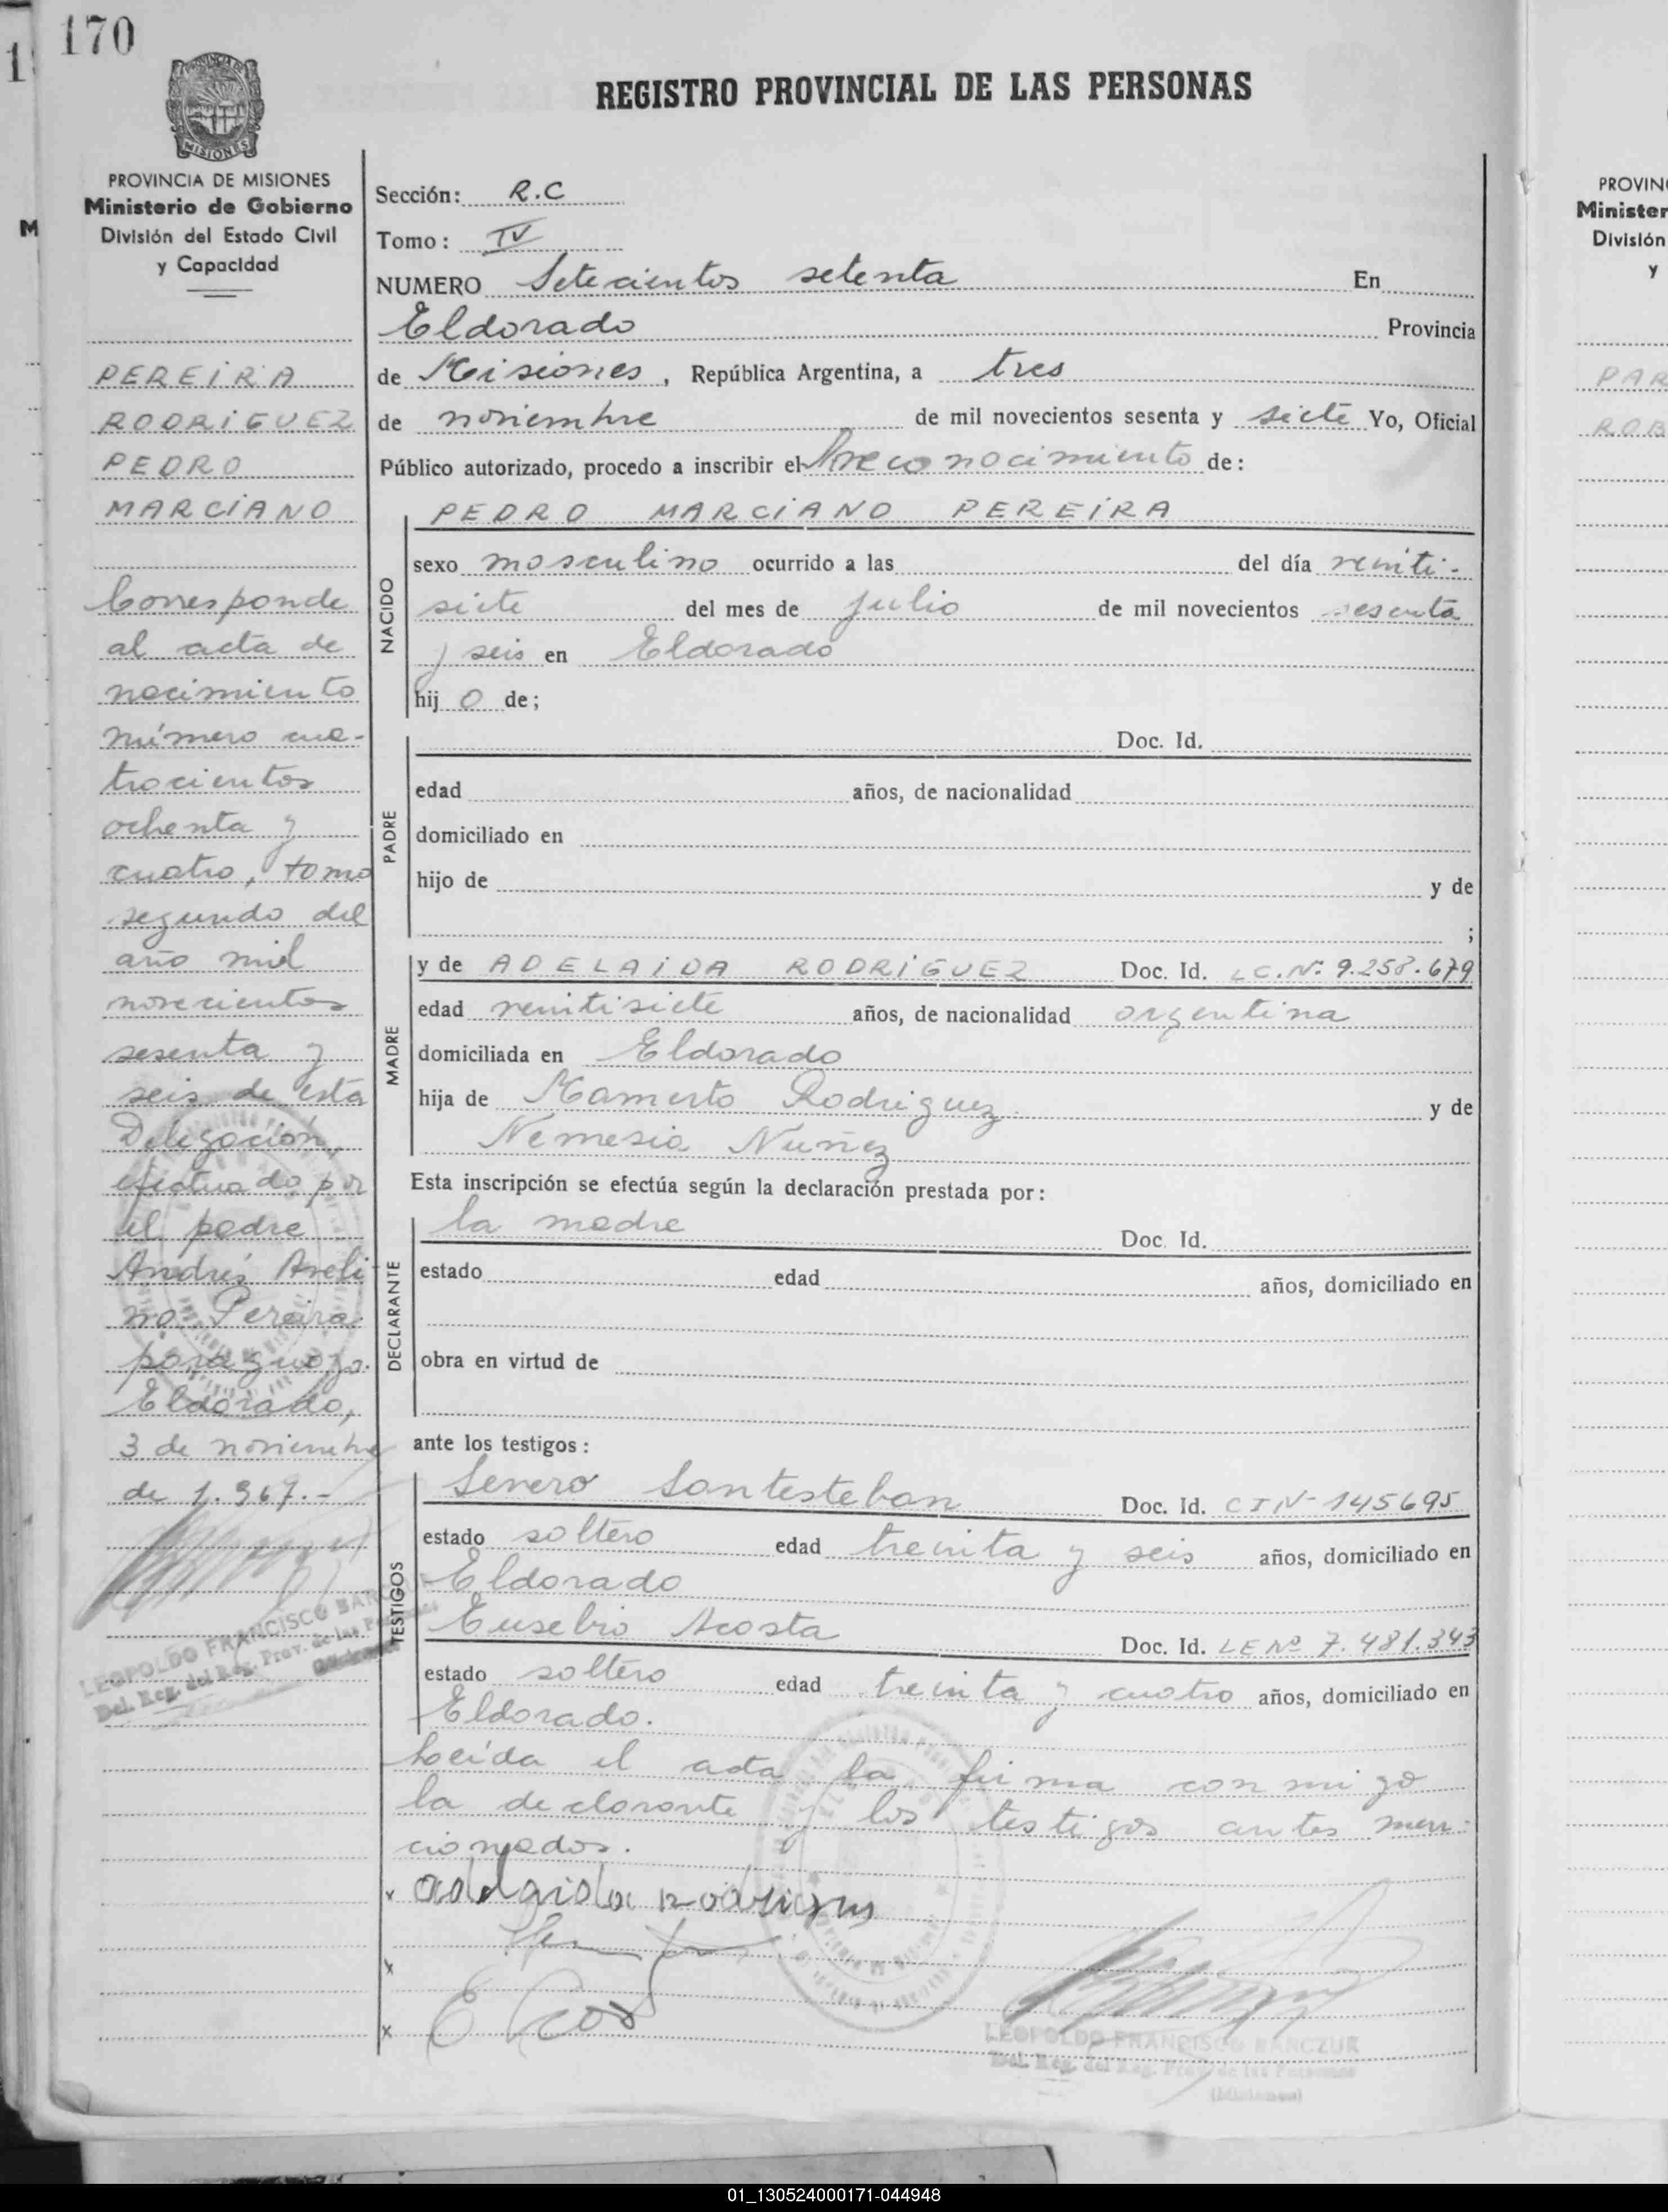 170
REGISTRO PROVINCIAL DE LAS PERSONAS
MISIONES
PROVINCIA DE MISIONES
Ministerio de Gobierno
División del Estado Civil
y Capacidad
PEREIRA
RODRIGUEZ
PEDRO
MARCIANO
Corresponde
al acta de
nacimiento
número cua-
trocientos
ochenta y
cuatro, tomo
segundo del
año mil
novecientos
sesenta y
seis de esta
Delegación,
efectuado por
el padre
Andrés Aveli
no Pereira
paraguayo.
Eldorado,
3 de noviembre
de 1.967.-
LEOPOLDO FRANCISCO BANCZUR
Del. Reg. del Reg. Prov. de las Personas
Sección: R.C
Tomo: IV
NUMERO Setecientos setenta En
Eldorado Provincia
de Misiones, República Argentina, a tres
de noviembre de mil novecientos sesenta y siete Yo, Oficial
Público autorizado, procedo a inscribir el reconocimiento de:
NACIDO
PEDRO MARCIANO PEREIRA
sexo masculino ocurrido a las del día veinti-
siete del mes de julio de mil novecientos sesenta
y seis en Eldorado
hij o de;
PADRE
Doc. Id.
edad años, de nacionalidad
domiciliado en
hijo de y de
;
MADRE
y de ADELAIDA RODRIGUEZ Doc. Id. LC.Nº 9.258.679
edad veintisiete años, de nacionalidad argentina
domiciliada en Eldorado
hija de Mamerto Rodriguez y de
Nemesia Nuñez
Esta inscripción se efectúa según la declaración prestada por:
DECLARANTE
la madre Doc. Id.
estado edad años, domiciliado en
obra en virtud de
ante los testigos:
TESTIGOS
Severo Santesteban Doc. Id. CIN- 145695
estado soltero edad treinta y seis años, domiciliado en
Eldorado
Eusebio Acosta Doc. Id. LE Nº 7.481.343
estado soltero edad treinta y cuatro años, domiciliado en
Eldorado.
Leída el acta la firma conmigo
la declarante y los testigos antes men-
cionados.
x Adelaida Rodrigues
x
x
LEOPOLDO FRANCISCO BANCZUR
Del. Reg. del Reg. Prov. de las Personas
PROVIN
Minister
División
y
PAR
ROB
01_130524000171-044948